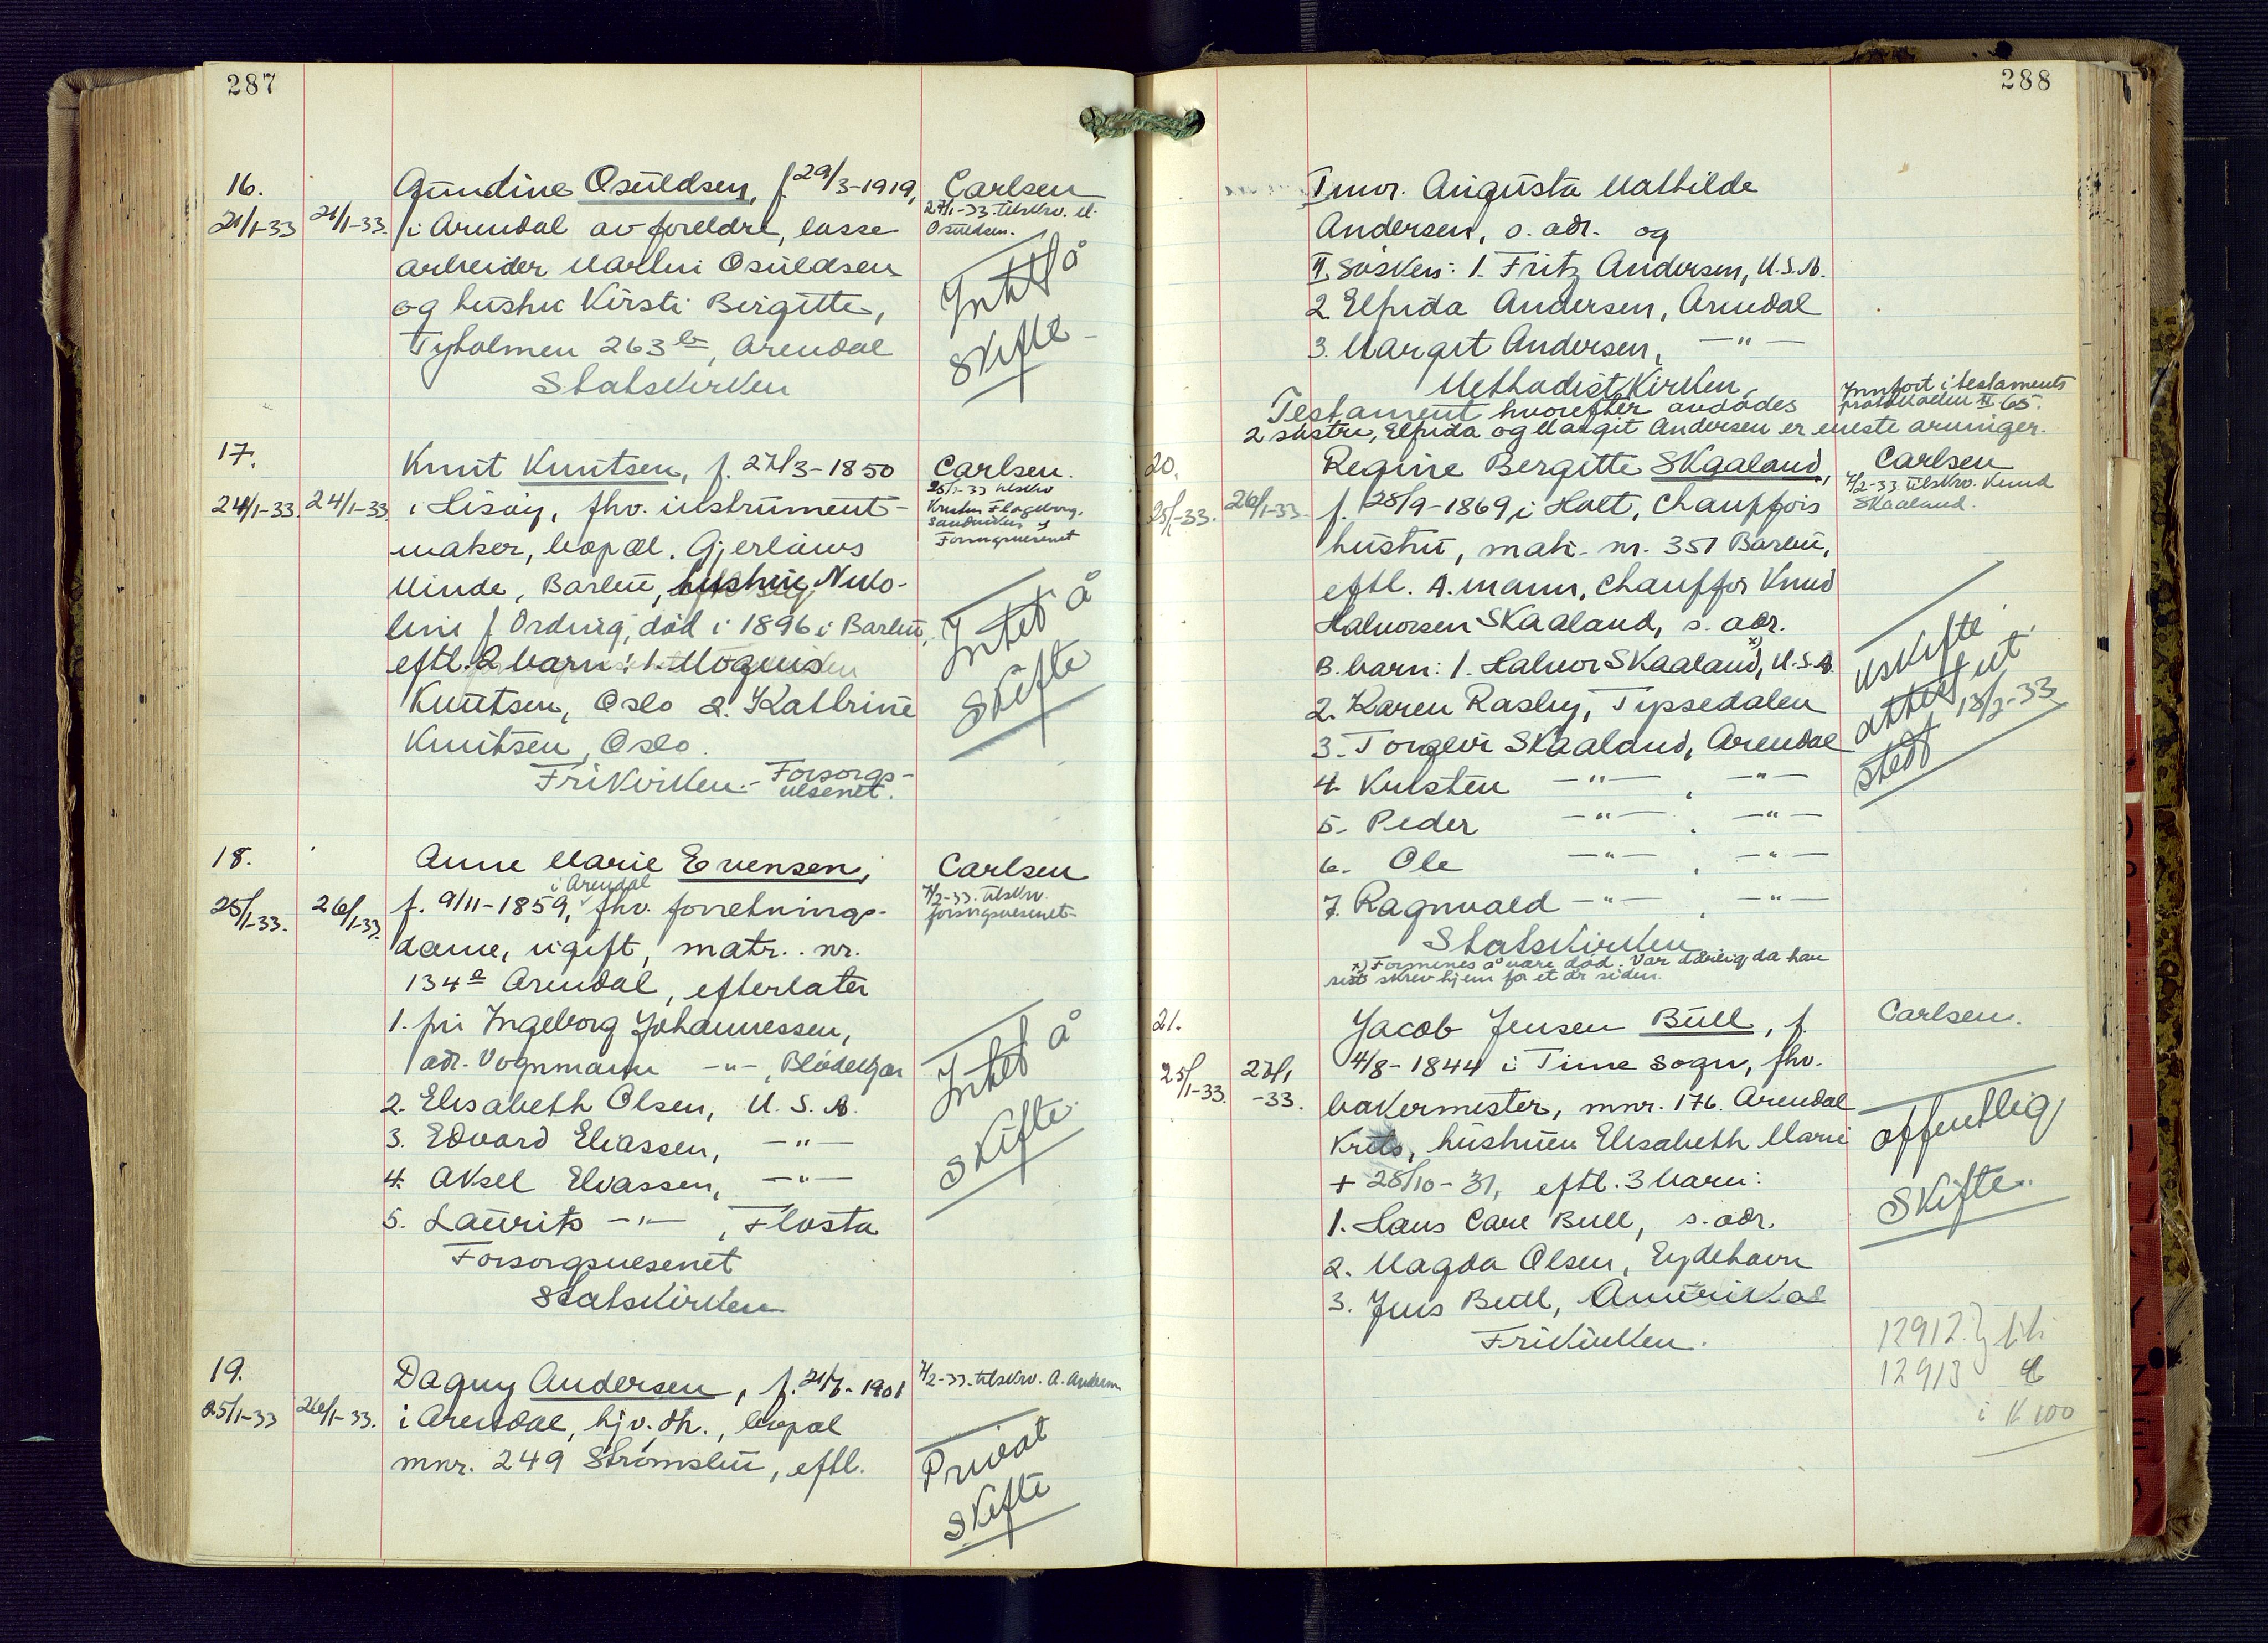 287
16.
21/1-33
21/1-33.
Gundine Osuldsen, f. 29/3-1919,
i Arendal av foreldre, losse
arbeider Martin Osuldsen
og hustru Kirsti Birgitte,
Tyholmen 263 b, Arendal
Statskirken
Carlsen
27/1-33. tilskrv. M.
Osuldsen.
Intet å
skifte
17.
24/1-33.
24/1-33
Knut Knutsen, f. 27/3-1850
i Hisøy, fhv. instrument-
maker, bopæl. Gjerløws
Minde, Barbu, Niko-
line f. Ording, død i 1896 i Barbu,
eftl. 2 barn: 1. Magnus
Knutsen, Oslo 2. Kathrine
Knutsen, Oslo.
Frikirken. - Forsorgs-
vesenet.
Carlsen.
25/1-33 tilskrv
Forsorgsvesenet
Intet å
skifte
18.
25/1-33.
26/1-33.
Anne Marie Evensen,
i Arendal
f. 9/11-1859, fhv. forretnings-
dame, ugift, matr. nr.
134 a Arendal, efterlater
1. fru Ingeborg Johannessen,
adr. Vognmann -"-, Blødekjær
2. Elisabeth Olsen, U.S.A.
3. Edvard Eliassen, -"-
4. Aksel Eliassen, -"-
5. Laurits -"-, Flosta
Forsorgsvesenet
Statskirken
Carlsen
7/2-33. tilskrv.
forsorgsvesenet-
Intet å
skifte.
19.
25/1-33
26/1-33.
Dagny Andersen, f. 21/7-1901
i Arendal, hj.v. dtr., bopæl
mnr. 249 Strømsbu, eftl.
7/2-33. tilskrv. A. Andersen
Privat
skifte
288
I mor. Augusta Mathilde
Andersen, s. adr. og
II. Søsken: 1. Fritz Andersen, U.S.A.
2. Elfrida Andersen, Arendal
3. Margit Andersen, -"-
Methodistkirken
Testament hvorefter avdødes
2 søstre, Elfrida og Margit Andersen er eneste arvinger.
Innført i testaments
protokollen II 65.
20.
25/1-33.
26/1-33.
Regine Bergitte Skaaland,
f. 28/9-1869 i Holt, Chaufførs
hustru, matr. nr. 351 Barbu,
eftl. A. mann, Chauffør Knud
Halvorsen Skaaland, s. adr.
B. barn: 1. Halvor Skaaland x), U.S.A.
2. Karen Rasby, Tipsedalen
3. Torgeir Skaaland, Arendal
4. Kristen -"-, -"-
5. Peder -"-, -"-
6. Ole -"-, -"-
7. Ragnvald -"-, -"-
Statskirken
x) Formenes å være død. Var dårlig da han
sist skrev hjem for et år siden.
Carlsen
7/2-33. tilskrv. Knud
Skaaland.
Uskifte
attest ut
stedt 13/2-33
21.
25/1-33.
27/1
-33.
Jacob Jensen Bull, f.
4/8-1844 i Time sogn, fhv.
bakermester, mnr. 176. Arendal
Krets, hustruen Elisabeth Marie
+ 28/10-31, eftl. 3 barn:
1. Hans Carl Bull, s. adr.
2. Magda Olsen, Eydehavn
3. Jens Bull, Amerika
Frikirken.
Carlsen.
Offentlig
skifte.
12912.
12913
i K 100